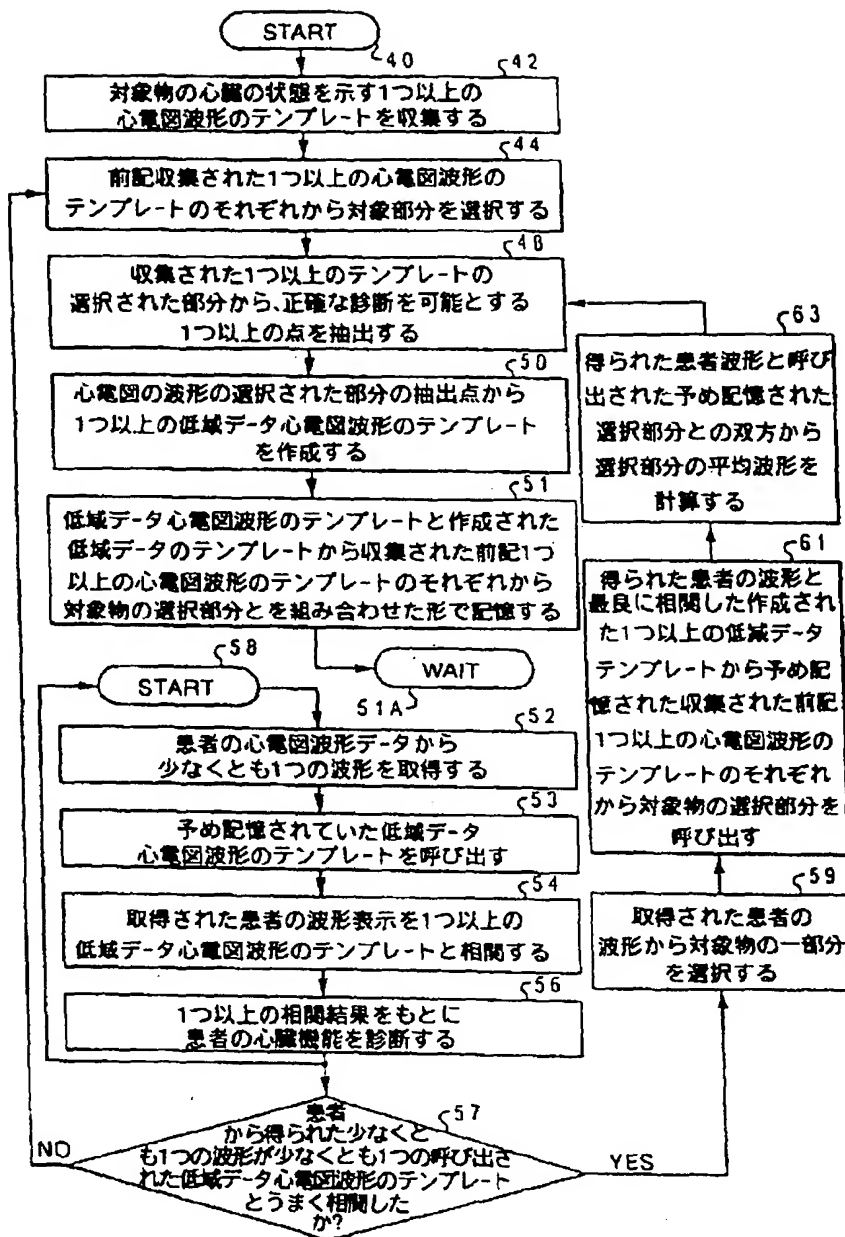 START
40
42
対象物の心臓の状態を示す1つ以上の
心電図波形のテンプレートを収集する
44
前記収集された1つ以上の心電図波形の
テンプレートのそれぞれから対象部分を選択する
48
収集された1つ以上のテンプレートの
選択された部分から、正確な診断を可能とする
1つ以上の点を抽出する
50
心電図の波形の選択された部分の抽出点から
1つ以上の低域データ心電図波形のテンプレート
を作成する
51
低域データ心電図波形のテンプレートと作成された
低域データのテンプレートから収集された前記1つ
以上の心電図波形のテンプレートのそれぞれから
対象物の選択部分とを組み合わせた形で記憶する
WAIT
51A
58
START
52
患者の心電図波形データから
少なくとも1つの波形を取得する
53
予め記憶されていた低域データ
心電図波形のテンプレートを呼び出す
54
取得された患者の波形表示を1つ以上の
低域データ心電図波形のテンプレートと相関する
56
1つ以上の相関結果をもとに
患者の心臓機能を診断する
57
患者
から得られた少なくと
も1つの波形が少なくとも1つの呼び出さ
れた低域データ心電図波形のテンプレート
とうまく相関した
か?
NO
YES
59
取得された患者の
波形から対象物の一部分
を選択する
61
得られた患者の波形と
最良に相関した作成され
た1つ以上の低減データ
テンプレートから予め記
憶された収集された前記
1つ以上の心電図波形の
テンプレートのそれぞれ
から対象物の選択部分を
呼び出す
63
得られた患者波形と呼び
出された予め記憶された
選択部分との双方から
選択部分の平均波形を
計算する